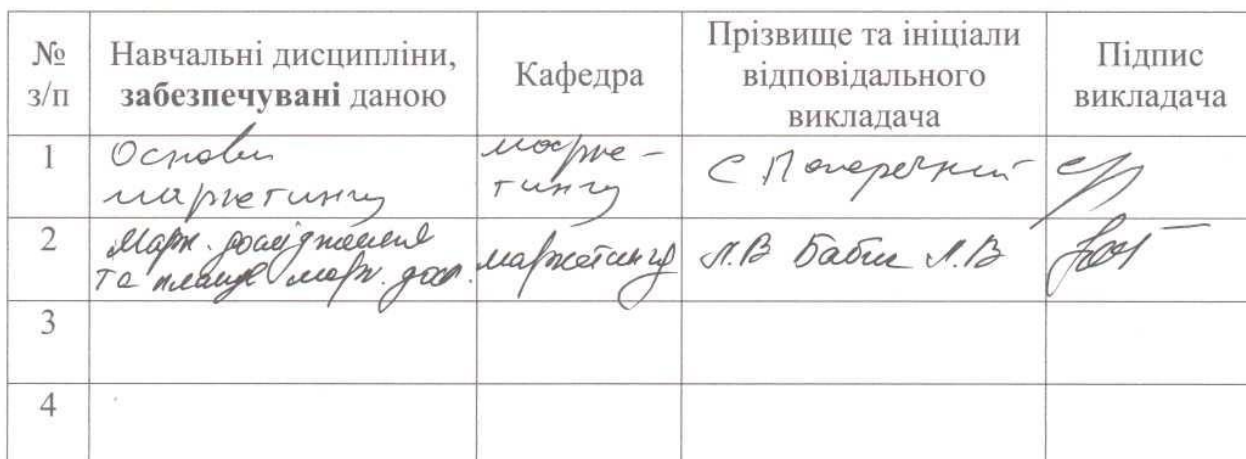 № з/п
Навчальні дисципліни,
забезпечувані даною
Кафедра
Прізвище та ініціали
відповідального
викладача
Підпис
викладача
1
Основи
маркетингу
марке-
тингу
С Поперечний
2
Марк. дослідження
та марк.
маркетингу
Л.В Бабич Л.В
3
4